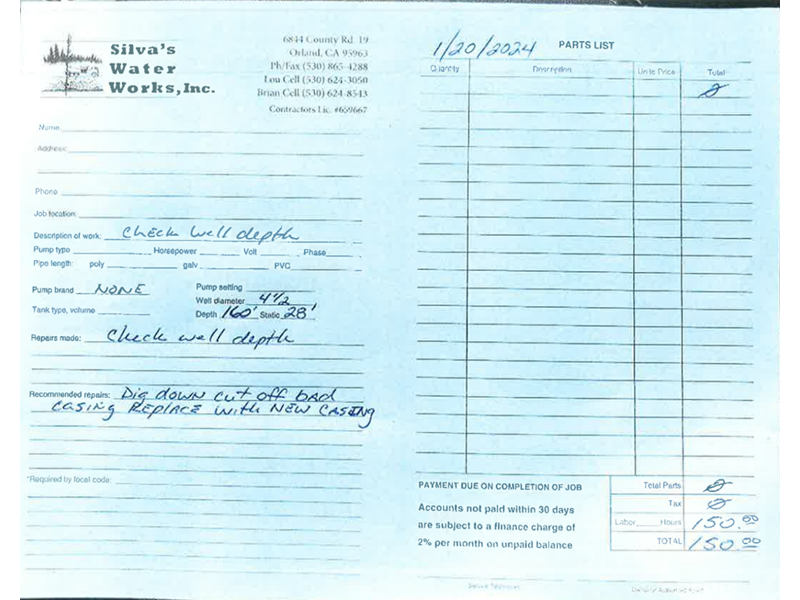 Silva's
Water
Works, Inc.
6844 County Rd. 19
Orland, CA 95963
Ph/Fax (530) 865-4288
Lou Cell (530) 624-3050
Brian Cell (530) 624-8543
Contractors Lic. #659667
Name
Address:
Phone
Job location:
Description of work: Check well depth
Pump type Horsepower Volt Phase
Pipe length: poly galv PVC
Pump brand NONE Pump setting
Well diameter 4 1/2
Tank type, volume Depth 160' Static 28'
Repairs made: Check well depth
Recommended repairs: Dig down cut off bad
casing Replace with NEW CASING
*Required by local code:
1/20/2024 PARTS LIST
Quantity Description Unite Price Total
Ø
PAYMENT DUE ON COMPLETION OF JOB
Accounts not paid within 30 days
are subject to a finance charge of
2% per month on unpaid balance
Total Parts Ø
Tax Ø
Labor Hours 150.00
TOTAL 150.00